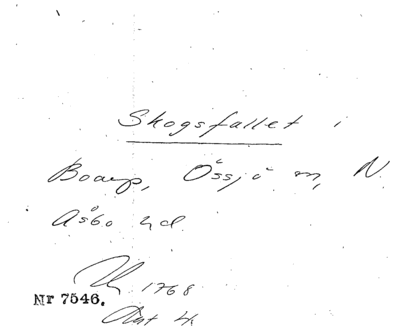 Skogsfallet i
Boarp, Össjö sn, N.
Åsbo hd.
1768
Nr 7546.
Akt 4.